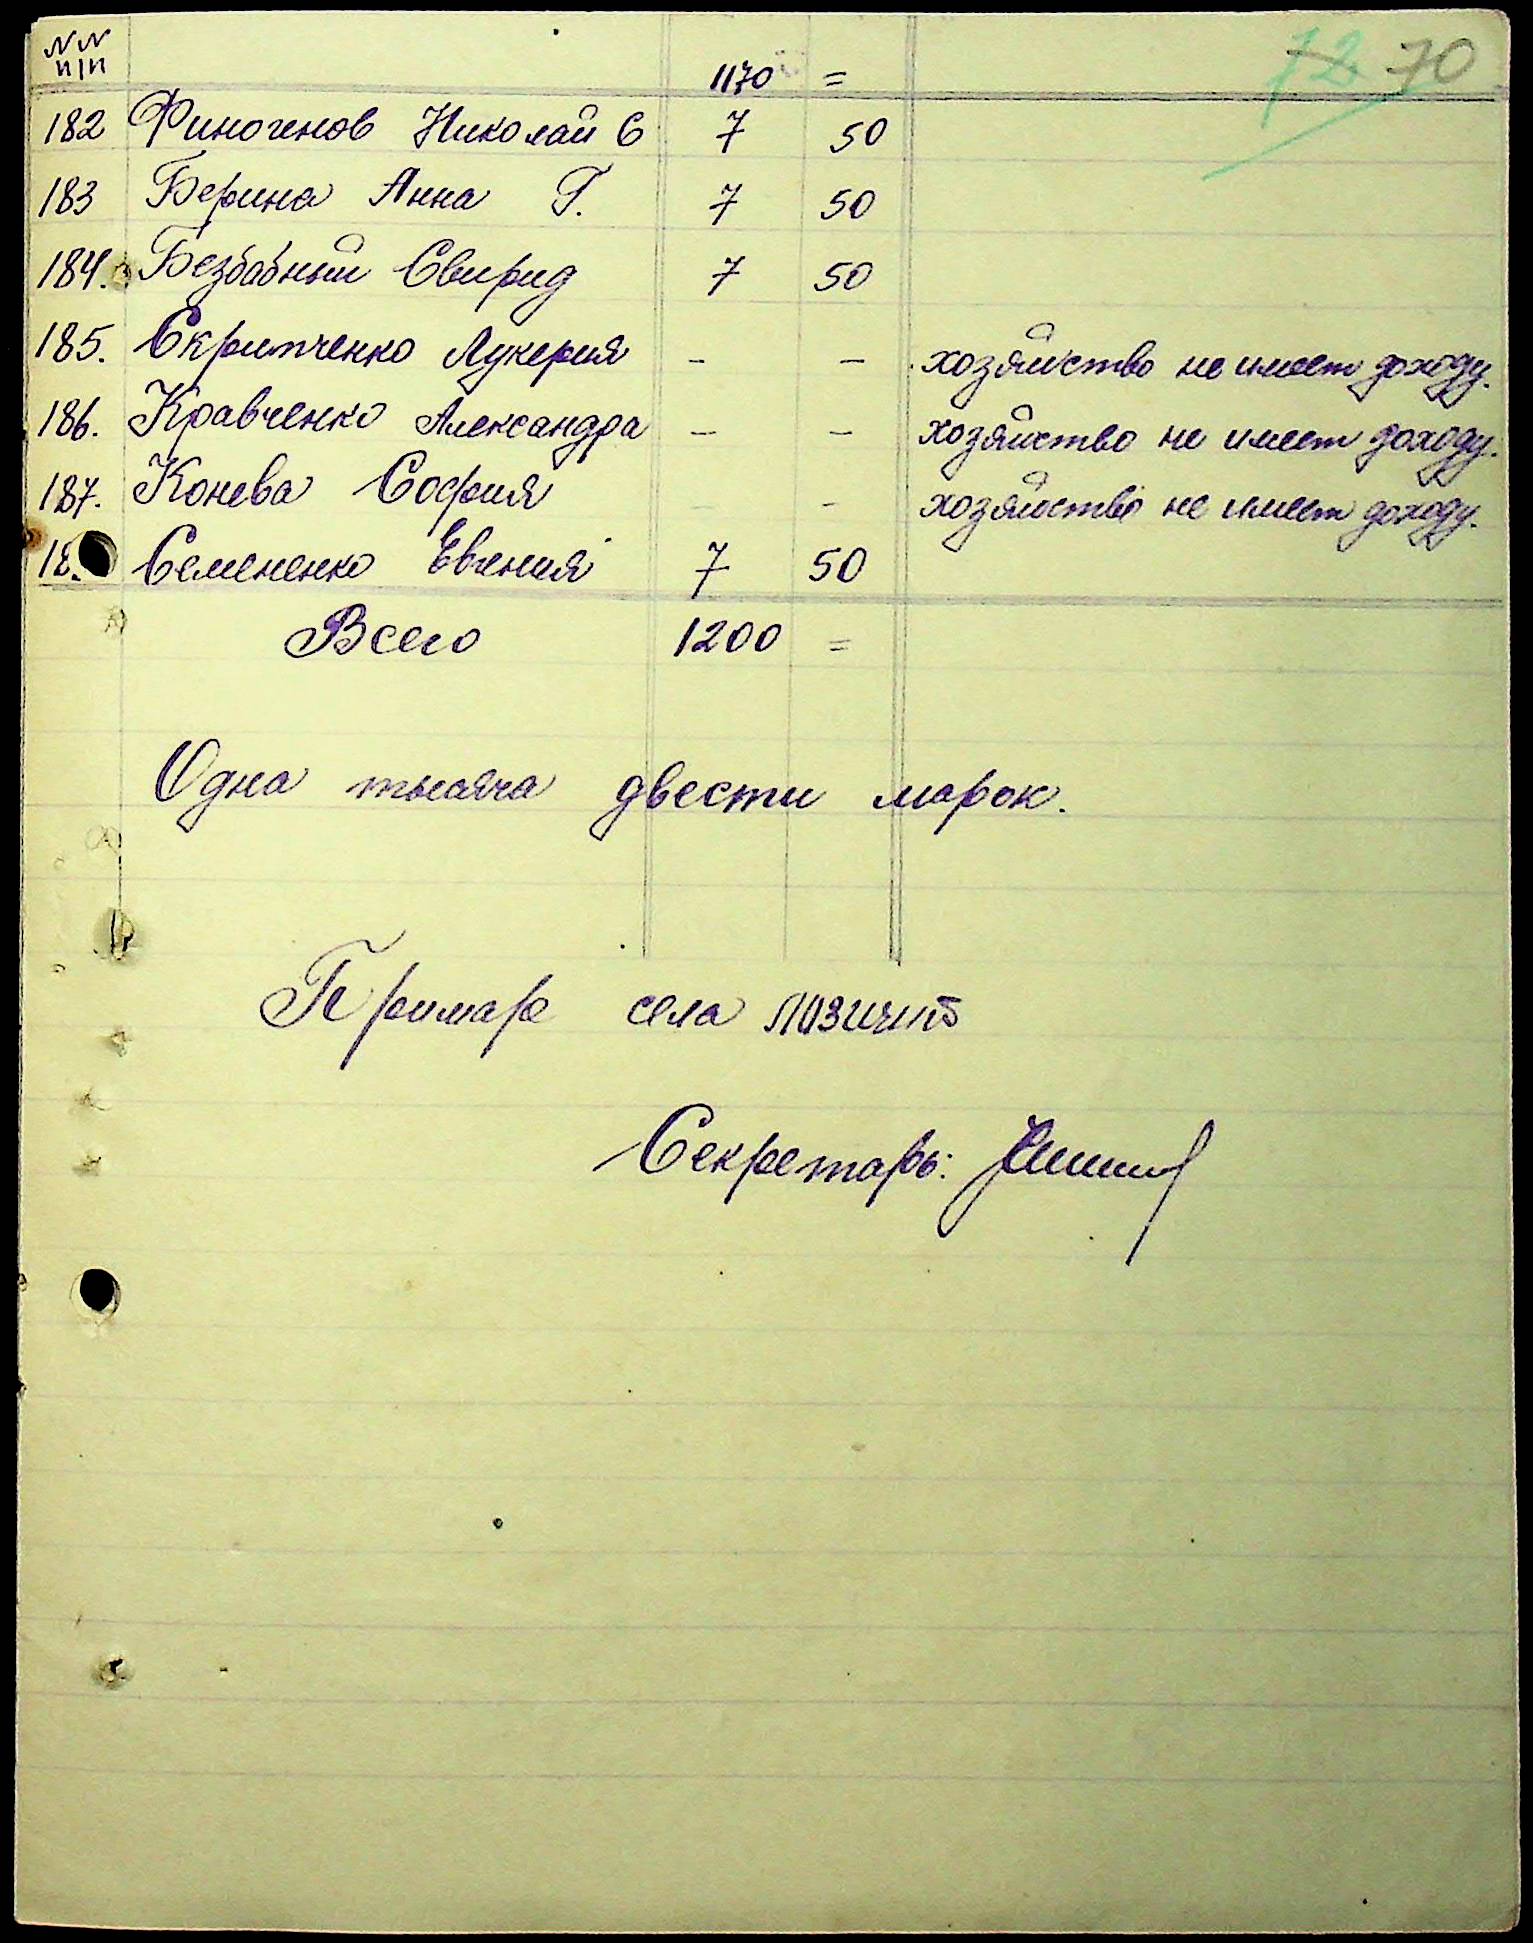 NN
п/п
1170 =
72 70
182 Финогенов Николай С 7 50
183 Берина Анна Г. 7 50
184. Безбабный Свирид 7 50
185. Скрипченко Лукерия - - хозяйство не имеет доходу.
186. Кравченко Александра - - хозяйство не имеет доходу.
187. Конева София - - хозяйство не имеет доходу.
18 Семененко Евгения 7 50
Всего 1200 =
Одна тысяча двести марок.
Примарь села
Секретарь: